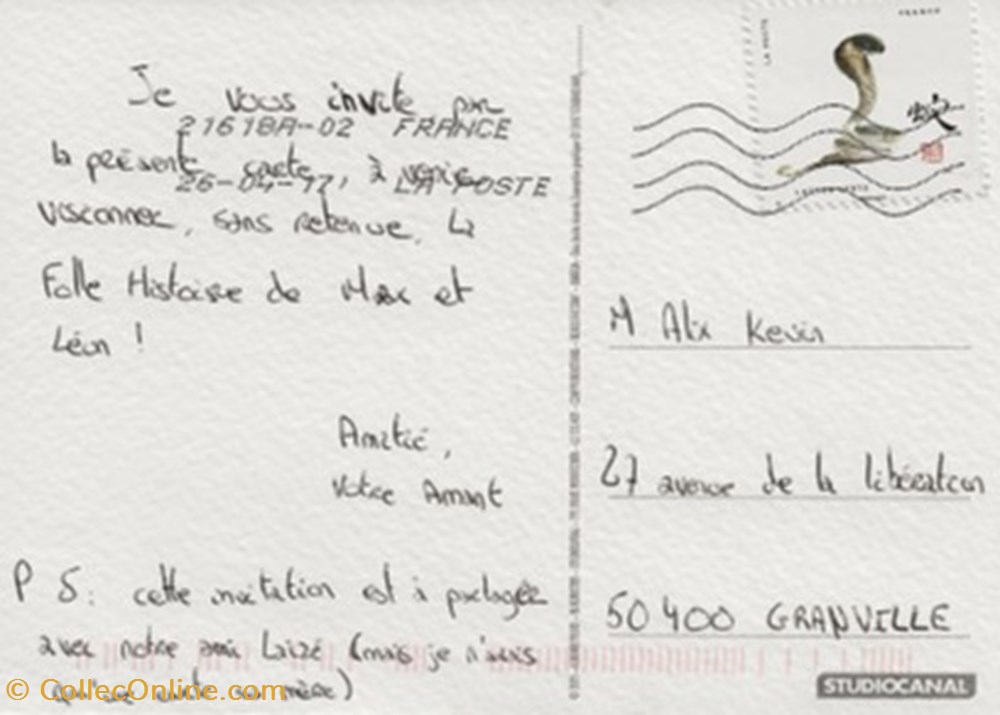 Je vous invite par
21618A-02 FRANCE
la présente carte, à venir
26-04-17 LA POSTE
visionner, sans retenue, la
Folle Histoire de Max et
Léon !
Amitié,
Votre Amant
P S : cette invitation est à partager
avec notre ami Laizé (mais je n'avais
mère)
FRANCE
LA POSTE
蛇
M Alix Kevin
27 avenue de la libération
50 400 GRANVILLE
STUDIOCANAL
© CollecOnline.com